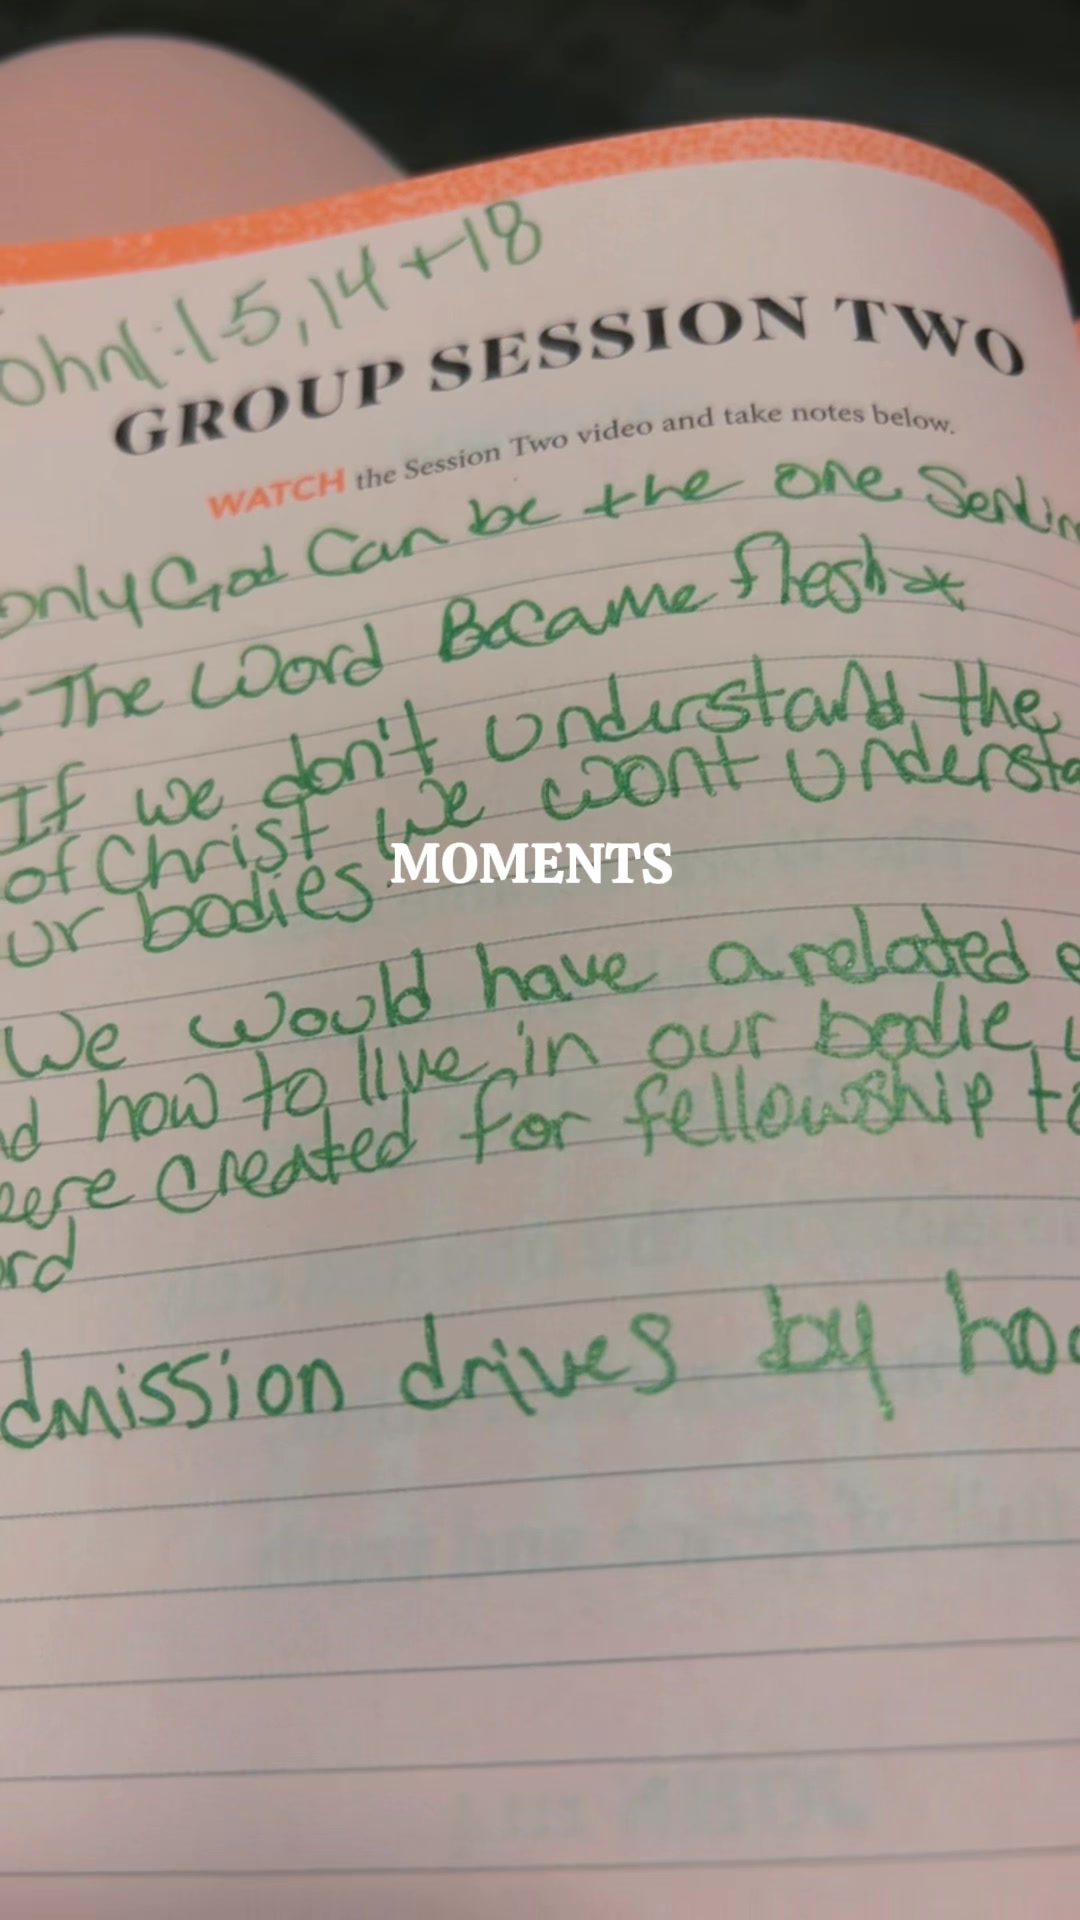 ohn1:1-5,14+18
GROUP SESSION TWO
WATCH the Session Two video and take notes below.
only God Can be the one Sendin
- The Word Became flesh *
If we don't understand the
of Christ We wont understa
ur bodies.
MOMENTS
We would have a related e
nd how to live in our bodie
eere created for fellowship to
ord
dmission drives by ho